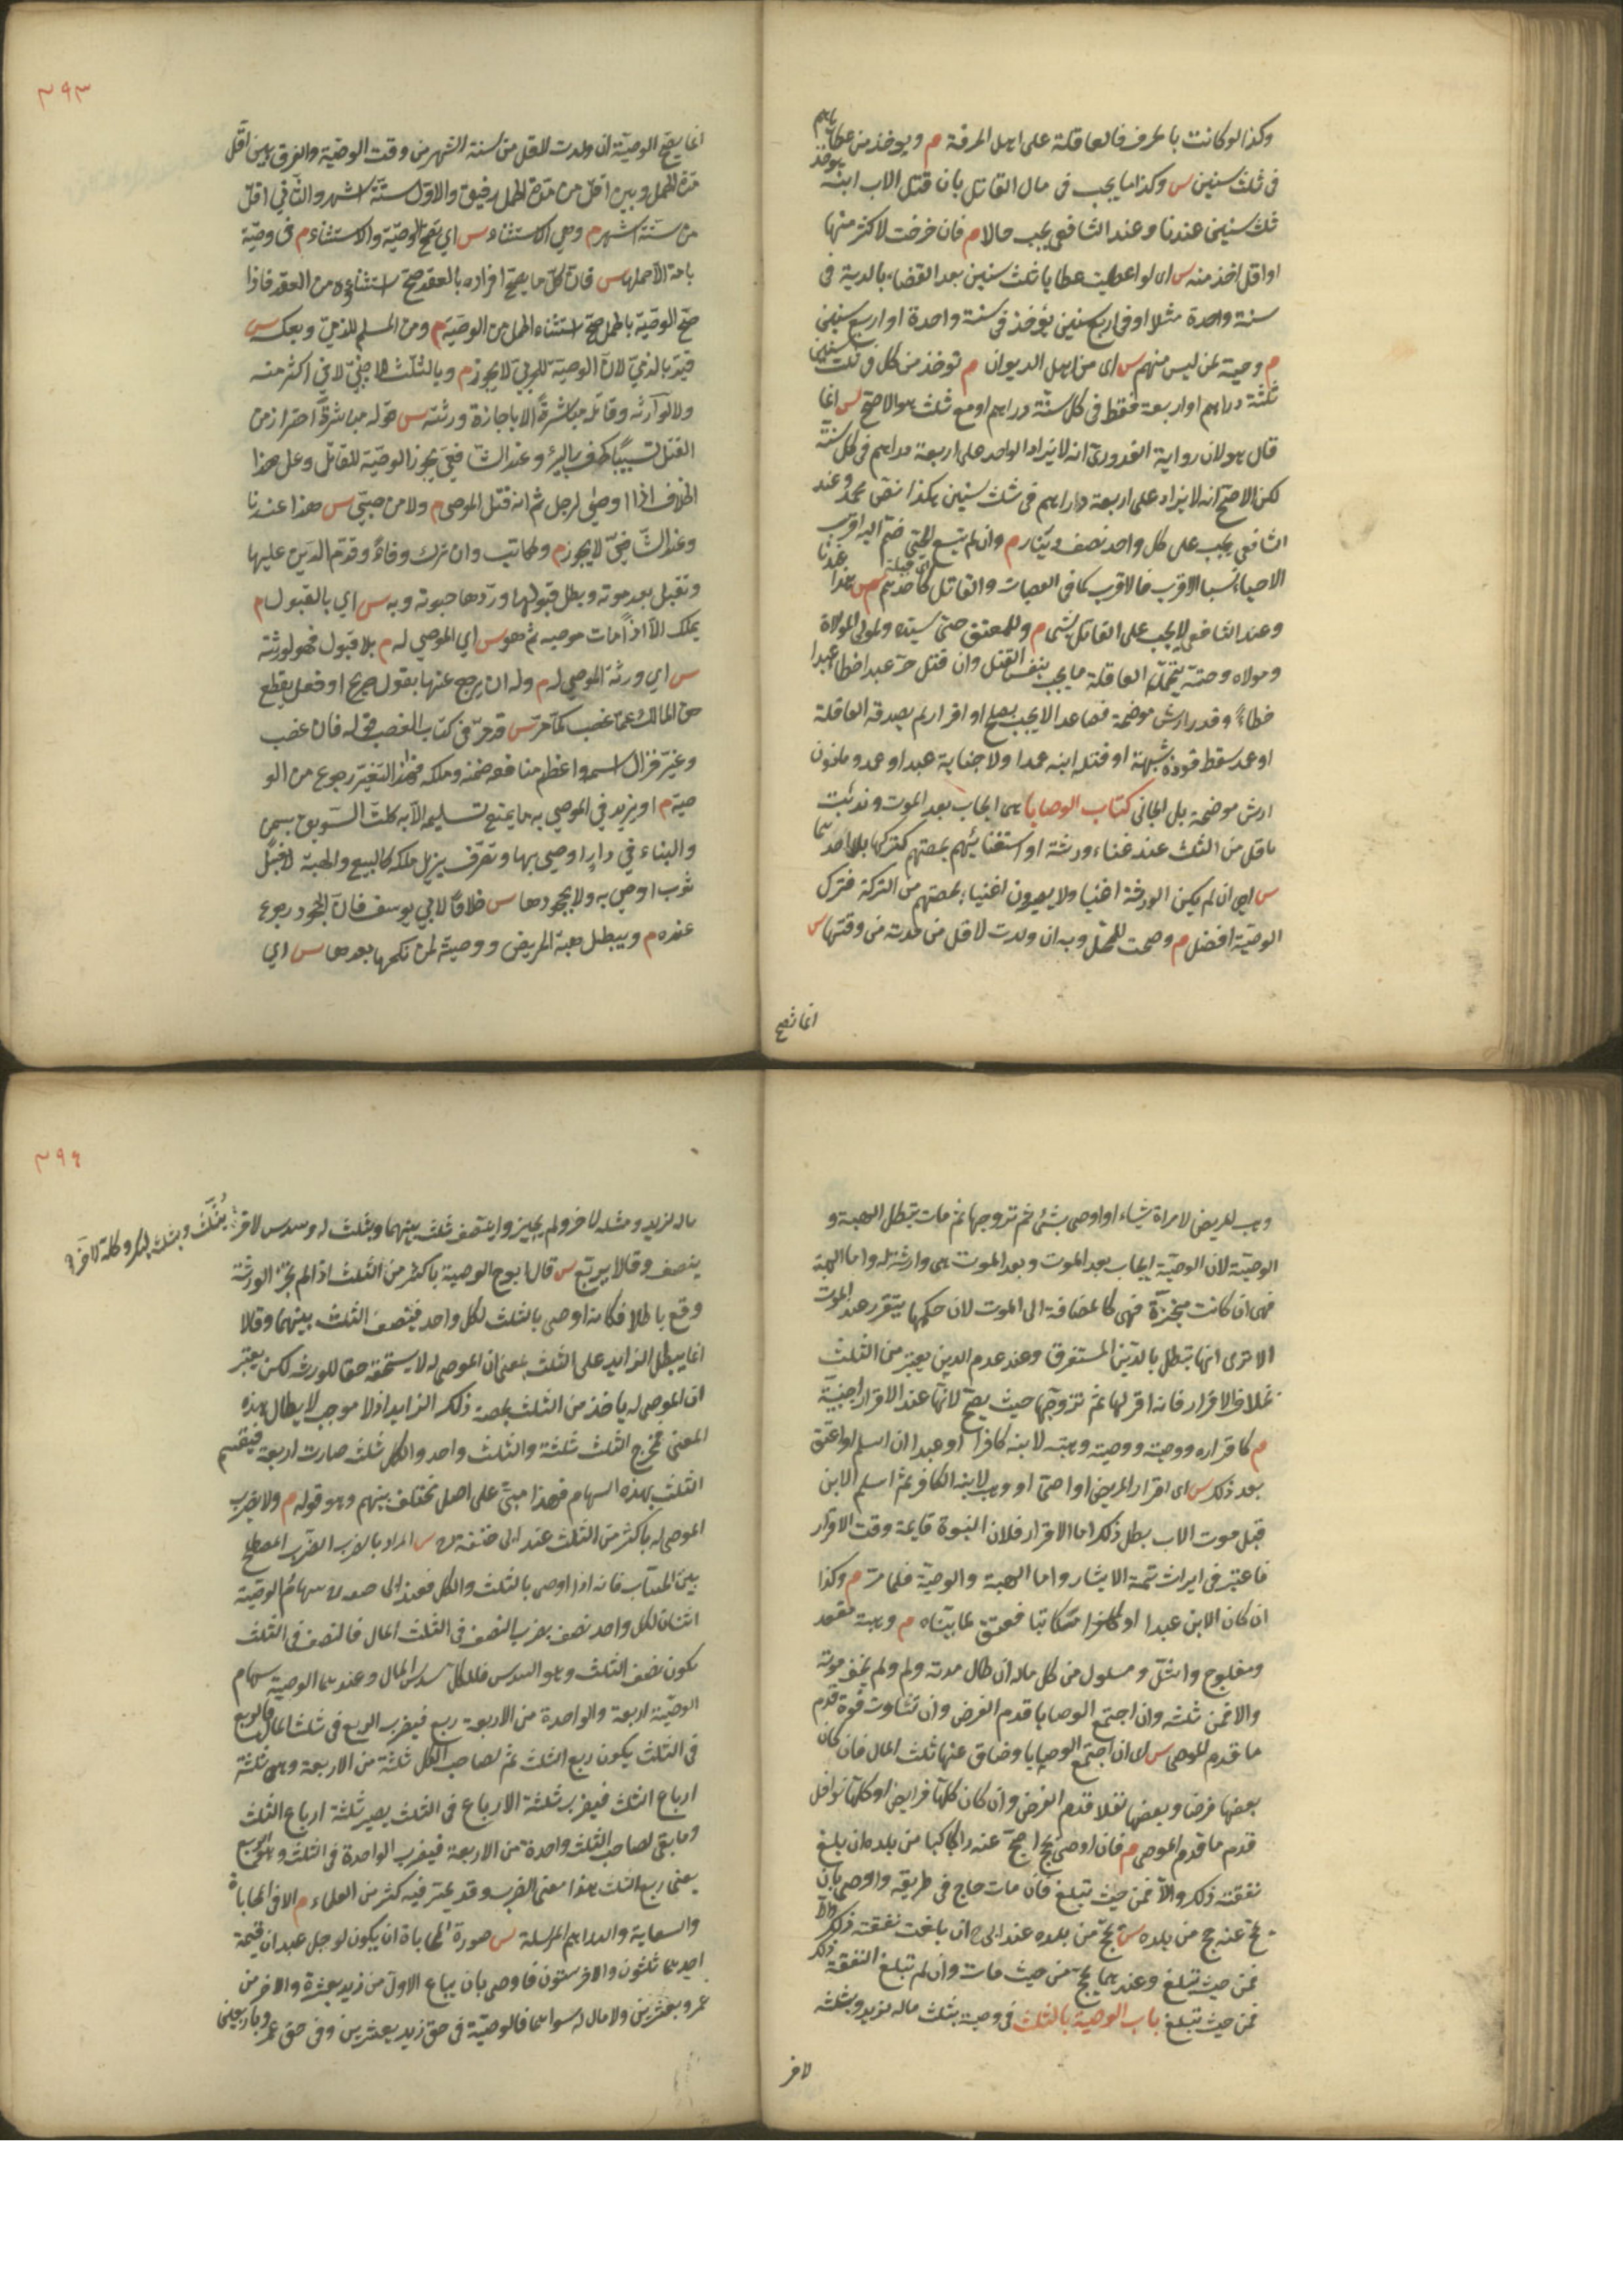 وكذا لو كانت بالحرف فالعاقلة على اهل الحرفة م ويوخذ من عطاياهم
فى ثلث سنين س وكذا ما يجب فى مال القاتل بان قتل الاب ابنه يوخذ
ثلث سنين عندنا وعند الشافعى يجب حالا م فان خرجت لاكثر منها
او اقل اخذ منه س اى لو اعطيت عطايا ثلث سنين بعد القضاء بالدية فى
سنة واحدة مثلا او فى اربع سنين يؤخذ فى سنة واحدة او اربع سنين
م وحية لمن ليس منهم س اى من اهل الديوان م توخذ من كل فى ثلث سنين
ثلثة دراهم او اربعة فقط فى كل سنة درهم او مع ثلث هو الاصح س انما
قال هو لان رواية القدورى انه لا يزاد الواحد على اربعة دراهم فى كل سنة
لكن الاصح انه لا يزاد على اربعة دراهم فى ثلث سنين هكذا نص محمد وعند
الشافعى يجب على كل واحد نصف دينار م وان لم يتسع الحى ضم اليه اقرب
الاحياء نسبا الاقرب فالاقرب كما فى العصبات والقاتل كاحدهم س هذا عندنا
وعند الشافعى لا يجب على القاتل شى م وللمعتق حى سيده ولمولى الموالاة
ومولاه وحيه يتحمل العاقلة ما يجب بنفس القتل وان قتل حر عبدا خطأ
خطاء وقدر ارش موضحة فصاعدا لا يجب بصلح او اقرار لم يصدقه العاقلة
او عمد سقط قوده بشبهة او قتله ابنه عمدا ولا جناية عبد او عمد وما دون
ارش موضحة بل الجانى كتاب الوصايا هى ايجاب بعد الموت وندبت
باقل من الثلث عند غناء ورثته او استغنائهم بحصتهم كتركها بلا احدهما
س اى ان لم يكن الورثة اغنيا ولا يصيرون اغنياء بحصتهم من التركة فترك
الوصية افضل م وصحت للحمل وبه ان ولدت لاقل من مدته من وقتها س
انما تصح
٣٩٣
انما يصح الوصية ان ولدت لاقل من ستة اشهر من وقت الوصية والفرق بين اقل
مدة الحمل وبين اقل من مدة الحمل دقيق والاول ستة اشهر والثاني اقل
من ستة اشهر م وهي الاستثناء س اي تصح الوصية والاستثناء م في وصية
بامة الا حملها س فان كل ما يصح افراده بالعقد صح استثناؤه من العقد فاذا
صح الوصية بالحمل صح استثناء الحمل من الوصية م ومن المسلم للذمي وبعكسه س
قيد بالذمي لان الوصية للحربي لا يجوز م وبالثلث للاجنبي لا في اكثر منه
ولا لوارثه وقاتله مباشرة الا باجازة ورثته س قوله مباشرة احتراز من
القتل تسبيبا كحفر البير وعند الشافعي يجوز الوصية للقاتل وعلى هذا
الخلاف اذا اوصى لرجل ثم انه قتل الموصي م ولا من صبي س هذا عندنا
وعند الشافعي لا يجوز م ومكاتب وان ترك وفاء وقدم الدين عليها
وتقبل بعد موته وبطل قبولها وردها حيوته وبه س اي بالقبول م
يملك الا اذا مات موصيه ثم هو س اي الموصي له م بلا قبول فهو لورثته
س اي ورثة الموصي له م وله ان يرجع عنها بقول صريح او فعل يقطع
حق المالك عما غصب كما مر س قد مر في كتاب الغصب قوله فان غصب
وغير فزال اسمه واعظم منافعه ضمنه وملكه فهذا التغير رجوع من الو
صية م او يزيد في الموصي به ما يمنع تسليمه الا به كلت السويق بسمن
والبناء في دار اوصي بها وتصرف يزيل ملكه كالبيع والهبة لا غسل
ثوب اوصي به ولا بجحودها س خلافا لابي يوسف فان الجحود رجوع
عنده م ويبطل هبة المريض ووصيته لمن نكحها بعدها س اي
وهب المريض لامراة شياء او اوصى بشئ ثم تزوجها ثم مات تبطل الهبة و
الوصية لان الوصية ايجاب بعد الموت وبعد الموت هى وارثة له واما الهبة
فهى ان كانت منجزة فهى كالمضافة الى الموت لان حكمها يتقرر عند الموت
الا ترى انها تبطل بالدين المستغرق وعند عدم الدين يعتبر من الثلث
بخلاف الاقرار فانه اقر لها ثم تزوجها حيث يصح لانها عند الاقرار اجنبية
م كاقراره ووصيته وهبته لابنه كافرا او عبدا ان اسلم او اعتق
بعد ذلك س اى اقرار المريض او اوصى او وهب لابنه الكافر ثم اسلم الابن
قبل موت الاب بطل ذلك اما الاقرار فلان البنوة قايمة وقت الاقرار
فاعتبر فى ايراث تهمة الايثار واما الهبة والوصية فلما مر م وكذا
ان كان الابن عبدا او مكاتبا فعتق لما بيناه م وهبة مقعد
ومفلوج واشل ومسلول من كل ماله ان طال مدته ولم يخف موته
والا فمن ثلثه وان اجتمع الوصايا قدم الفرض وان تساوت قوة قدم
ما قدم الموصى س اى ان اجتمع الوصايا وضاق عنها ثلث المال فان كان
بعضها فرضا وبعضها نفلا قدم الفرض وان كان كلها فرايض او كلها نوافل
قدم ما قدم الموصى م فان اوصى بحج احج عنه راكبا من بلده ان بلغ
نفقته ذلك والا فمن حيث تبلغ فان مات حاج فى طريقه واوصى بان
يحج عنه حج من بلده س يحج من بلده عند ابى ح ان بلغت نفقته ذلك والا
فمن حيث تبلغ وعندهما يحج من حيث مات وان لم تبلغ النفقة ذلك
فمن حيث تبلغ باب الوصية بالثلث فى وصية بثلث ماله لزيد وبثلثه
لاخر
٣٩٤
ماله لزيد ومثله لاخر ولم يجيزوا ينصف ثلثه بينهما وبثلث له وسدس لاخر يثلث وبثلثه لبكر وكله لاخر
ينصف وقالا يربع س قال ابو ح الوصية باكثر من الثلث اذا لم يجز الورثة
وقع باطلا فكانه اوصى بالثلث لكل واحد فينصف الثلث بينهما وقالا
انما يبطل الزايد على الثلث بمعنى ان الموصى له لا يستحقه حقا للورثة لكن يعتبر
ان الموصى له ياخذ من الثلث بحصة ذلك الزايد اذ لا موجب لابطال هذه
المعنى فمخرج الثلث ثلثة والثلث واحد والكل ثلثه صارت اربعة فيقسم
الثلث بهذه السهام فهذا مبنى على اصل مختلف بينهم وهو قوله م ولا يضرب
الموصى له باكثر من الثلث عند ابى حنيفة رح س المراد بالضرب الضرب المصطلح
بين الحساب فانه اذا اوصى بالثلث والكل فعند ابى ح سهام الوصية
اثنان لكل واحد نصف يضرب النصف فى الثلث المال فالنصف فى الثلث
يكون نصف الثلث وهو السدس فلكل سدس المال وعندهما الوصية سهام
الوصية اربعة والواحدة من الاربعة ربع فيضرب الربع فى ثلث المال فالربع
فى الثلث يكون ربع الثلث ثم لصاحب الكل ثلثة من الاربعة وهى ثلثة
ارباع الثلث فيضرب ثلثة الارباع فى الثلث يصير ثلثة ارباع الثلث
وما بقى لصاحب الثلث واحدة من الاربعة فيضرب الواحدة فى الثلث وهو الربع
يعنى ربع الثلث هذا معنى الضرب وقد تحير فيه كثير من العلماء م الا فى المحاباة
والسعاية والدراهم المرسلة س صورة المحاباة ان يكون لرجل عبدان قيمة
احدهما ثلثون والاخر ستون فاوصى بان يباع الاول من زيد بعشرة والاخر من
عمرو بعشرين ولا مال له سواهما فالوصية فى حق زيد بعشرين وفى حق عمرو باربعين